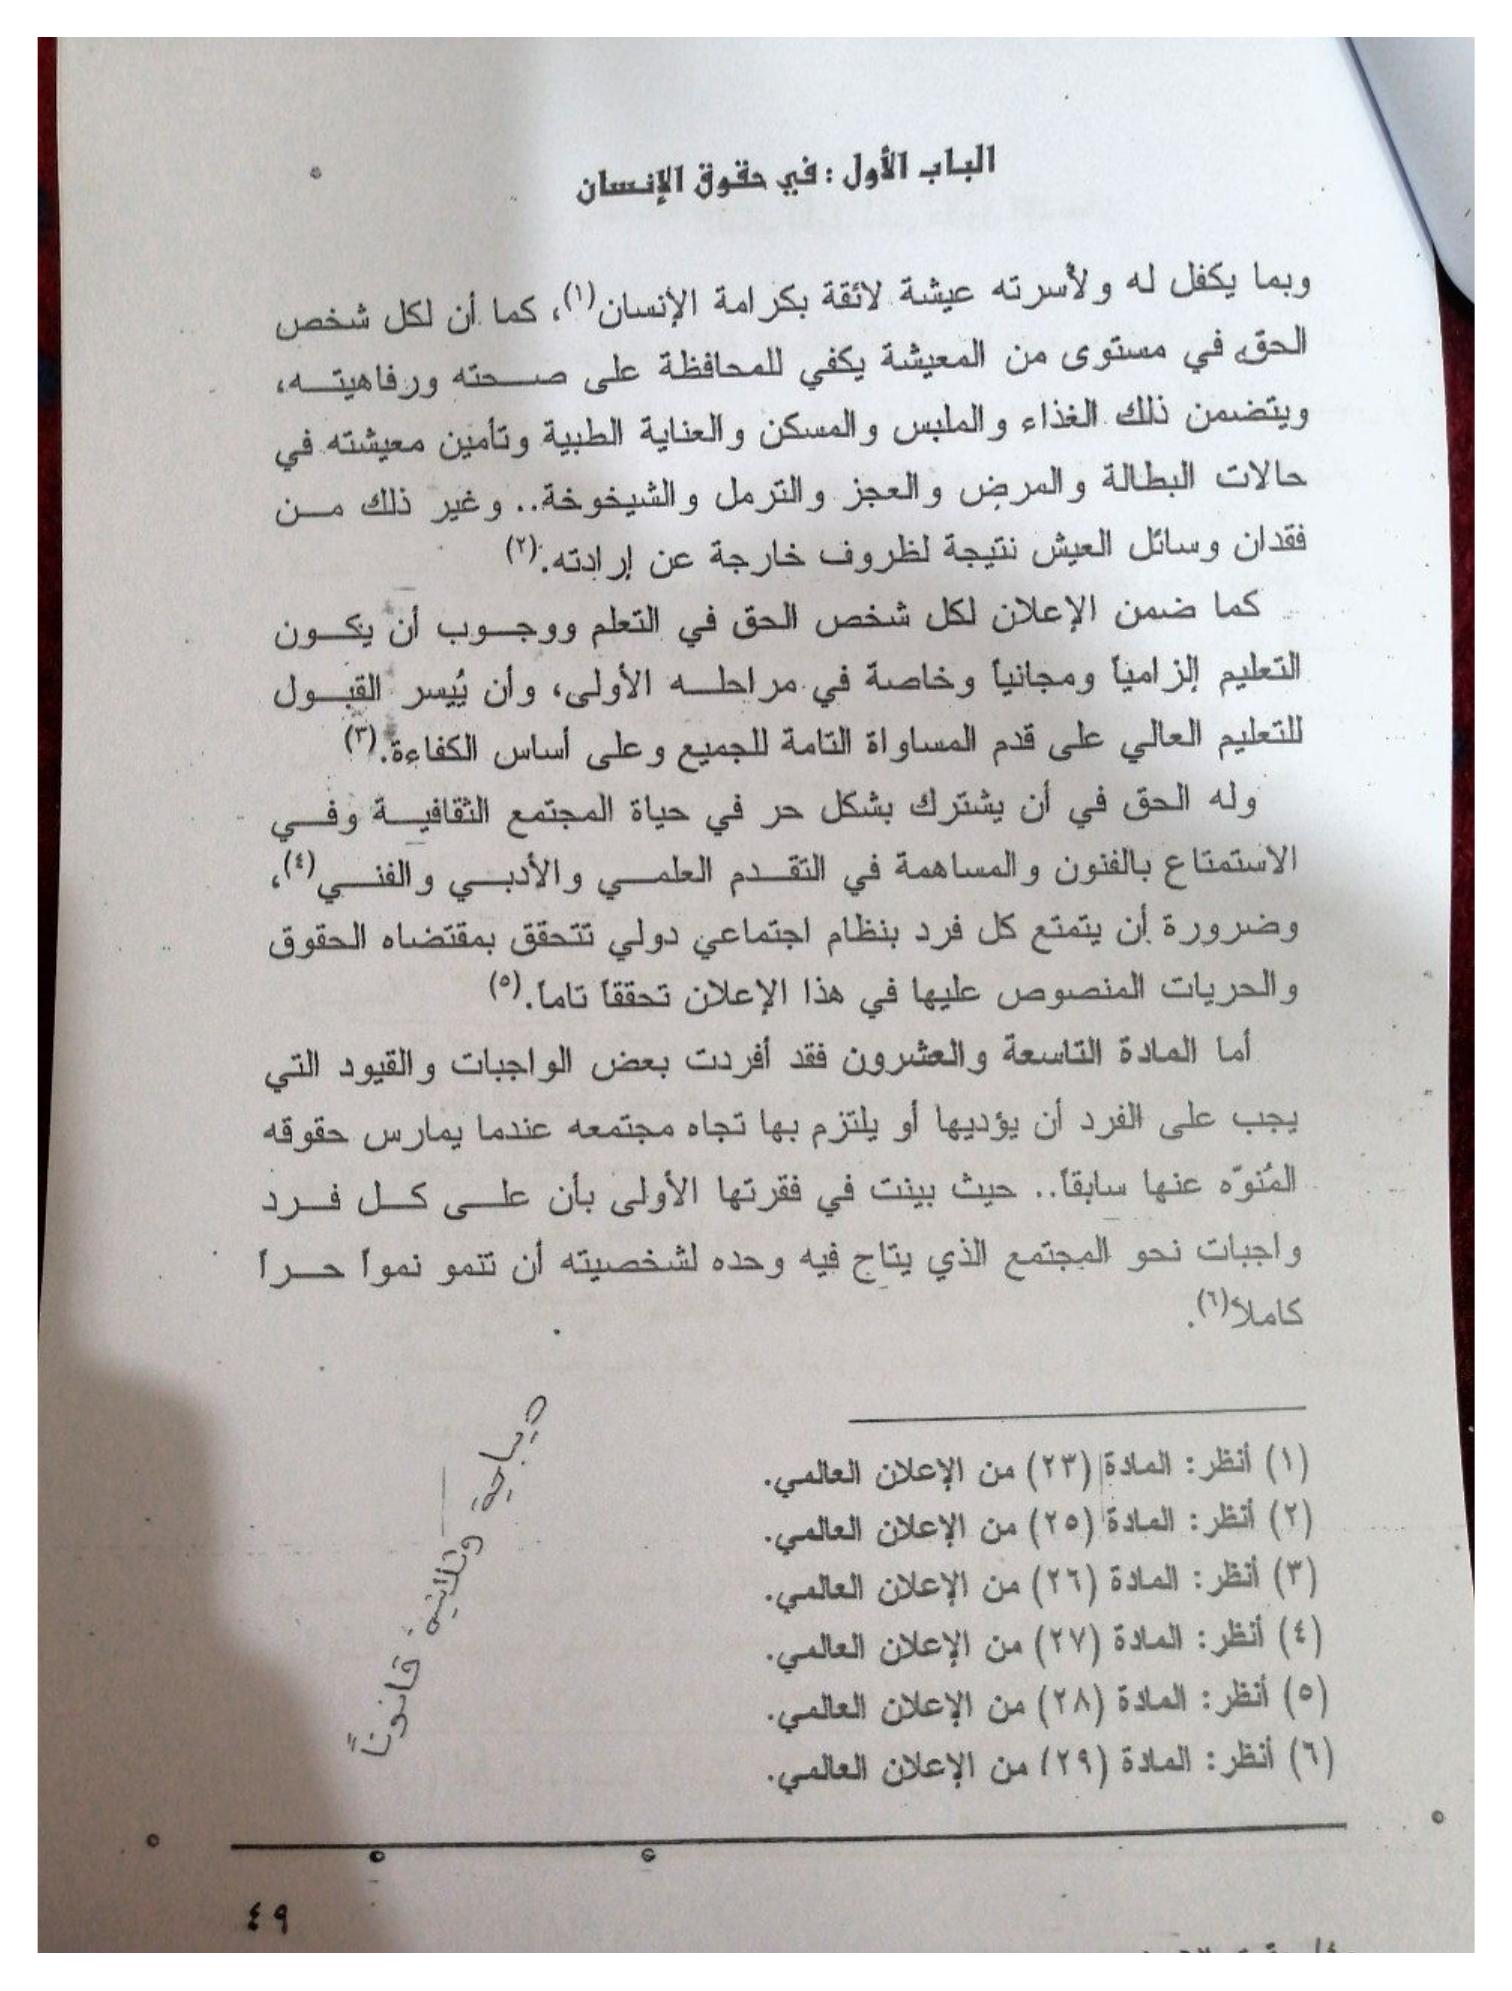 الباب الأول : في حقوق الإنسان
وبما يكفل له ولأسرته عيشة لائقة بكرامة الإنسان(١)، كما أن لكل شخص
الحق في مستوى من المعيشة يكفي للمحافظة على صـــحته ورفاهيتـــه،
ويتضمن ذلك الغذاء والملبس والمسكن والعناية الطبية وتأمين معيشته في
حالات البطالة والمرض والعجز والترمل والشيخوخة.. وغير ذلك مـــن
فقدان وسائل العيش نتيجة لظروف خارجة عن إرادته.(٢)
كما ضمن الإعلان لكل شخص الحق في التعلم ووجـــوب أن يكـــون
التعليم إلزامياً ومجانياً وخاصة في مراحلـــه الأولى، وأن يُيسر القبـــول
للتعليم العالي على قدم المساواة التامة للجميع وعلى أساس الكفاءة.(٣)
وله الحق في أن يشترك بشكل حر في حياة المجتمع الثقافيـــة وفـــي
الاستمتاع بالفنون والمساهمة في التقـــدم العلمـــي والأدبـــي والفنـــي(٤)،
وضرورة أن يتمتع كل فرد بنظام اجتماعي دولي تتحقق بمقتضاه الحقوق
والحريات المنصوص عليها في هذا الإعلان تحققاً تاماً.(٥)
أما المادة التاسعة والعشرون فقد أفردت بعض الواجبات والقيود التي
يجب على الفرد أن يؤديها أو يلتزم بها تجاه مجتمعه عندما يمارس حقوقه
المُنوّه عنها سابقاً.. حيث بينت في فقرتها الأولى بأن علـــى كـــل فـــرد
واجبات نحو المجتمع الذي يتاح فيه وحده لشخصيته أن تنمو نمواً حـــراً
كاملاً(٦).
(١) أنظر: المادة (٢٣) من الإعلان العالمي.
(٢) أنظر: المادة (٢٥) من الإعلان العالمي.
(٣) أنظر: المادة (٢٦) من الإعلان العالمي.
(٤) أنظر: المادة (٢٧) من الإعلان العالمي.
(٥) أنظر: المادة (٢٨) من الإعلان العالمي.
(٦) أنظر: المادة (٢٩) من الإعلان العالمي.
ديباجة وثلاثين قانوناً
٤٩